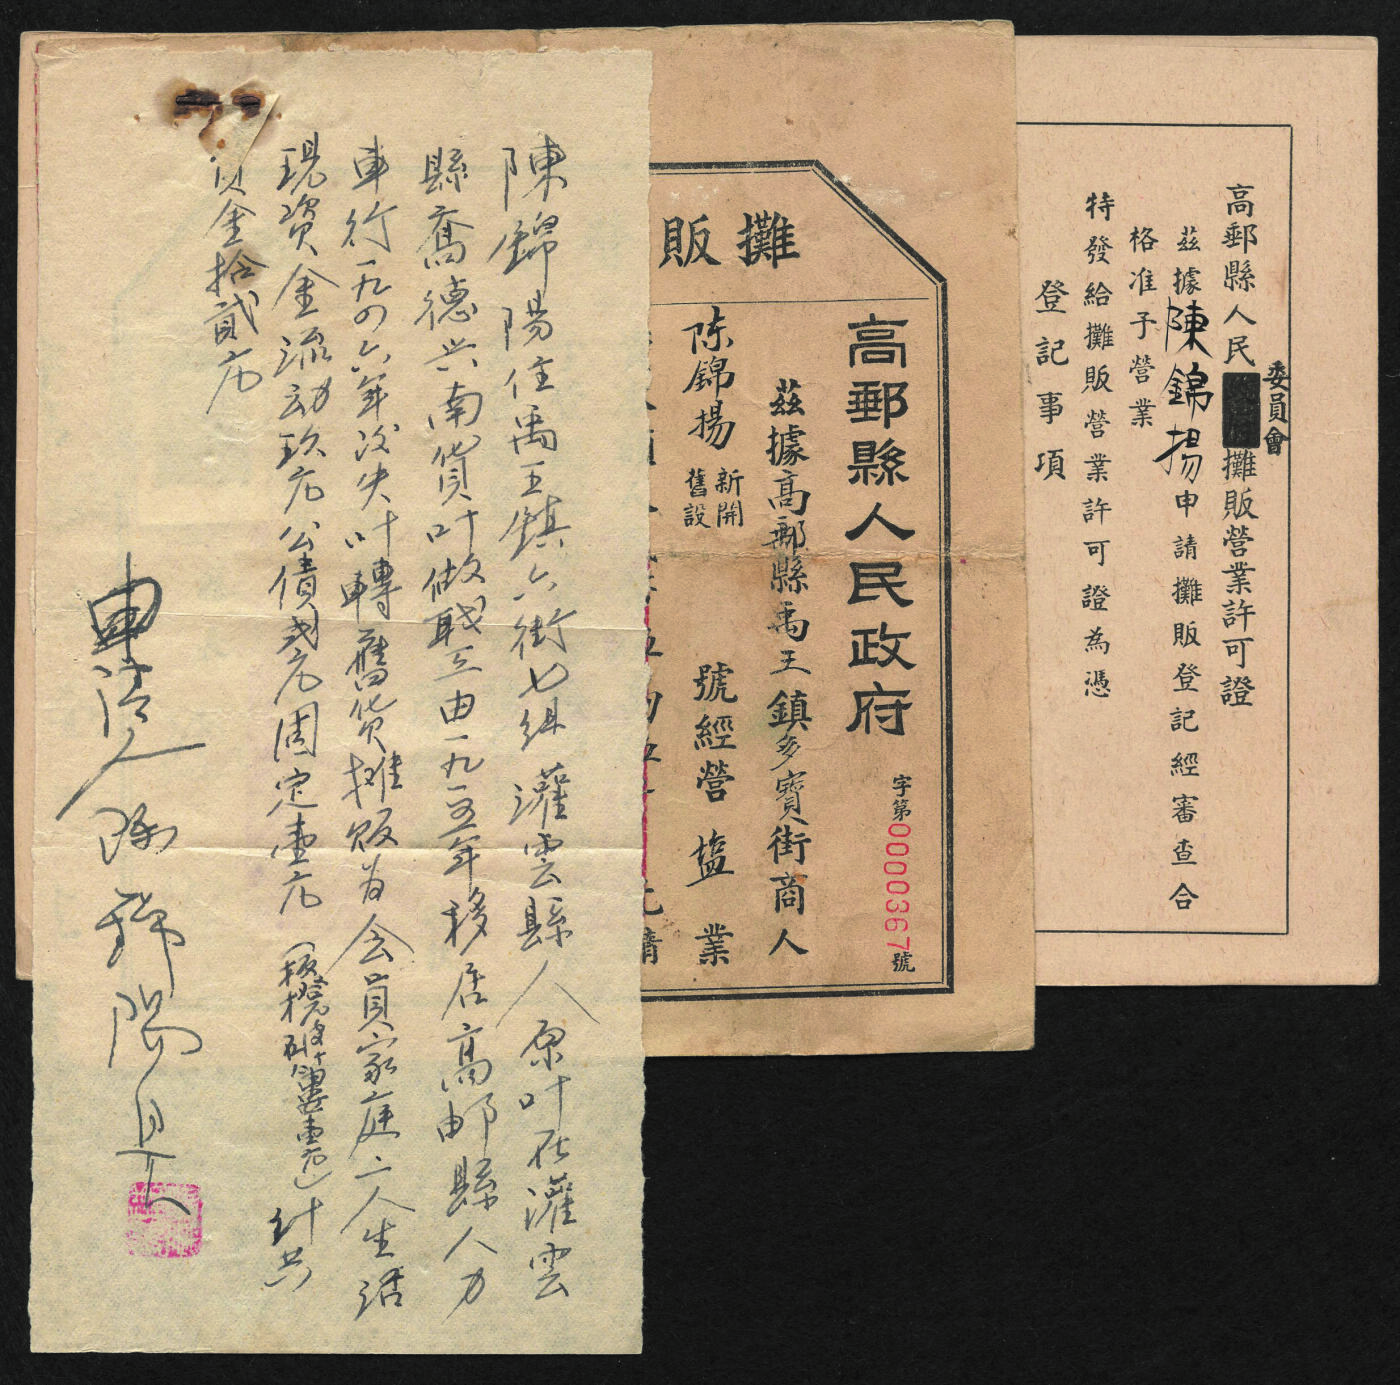 高郵縣人民委員會攤販營業許可證
茲據陳錦揚申請攤販登記經審查合
格准予營業
特發給攤販營業許可證為憑
登記事項
攤販
高郵縣人民政府
字第0000367號
茲據高郵縣禹王鎮多寶街商人
陈錦揚 新開 舊設 號經營塩業
陳錦陽住禹王鎮六街七组灌雲縣人原叶在灌雲
縣喬德兴南貨叶做职工由一九一五年移居高邮縣人力
車行一九四六年没失叶轉舊货摊贩为会員家庭二人生活
現資金流动玖元公債弍元固定壹元(板櫈 壹元)计共
資金拾貳元
申请人陈錦陽具